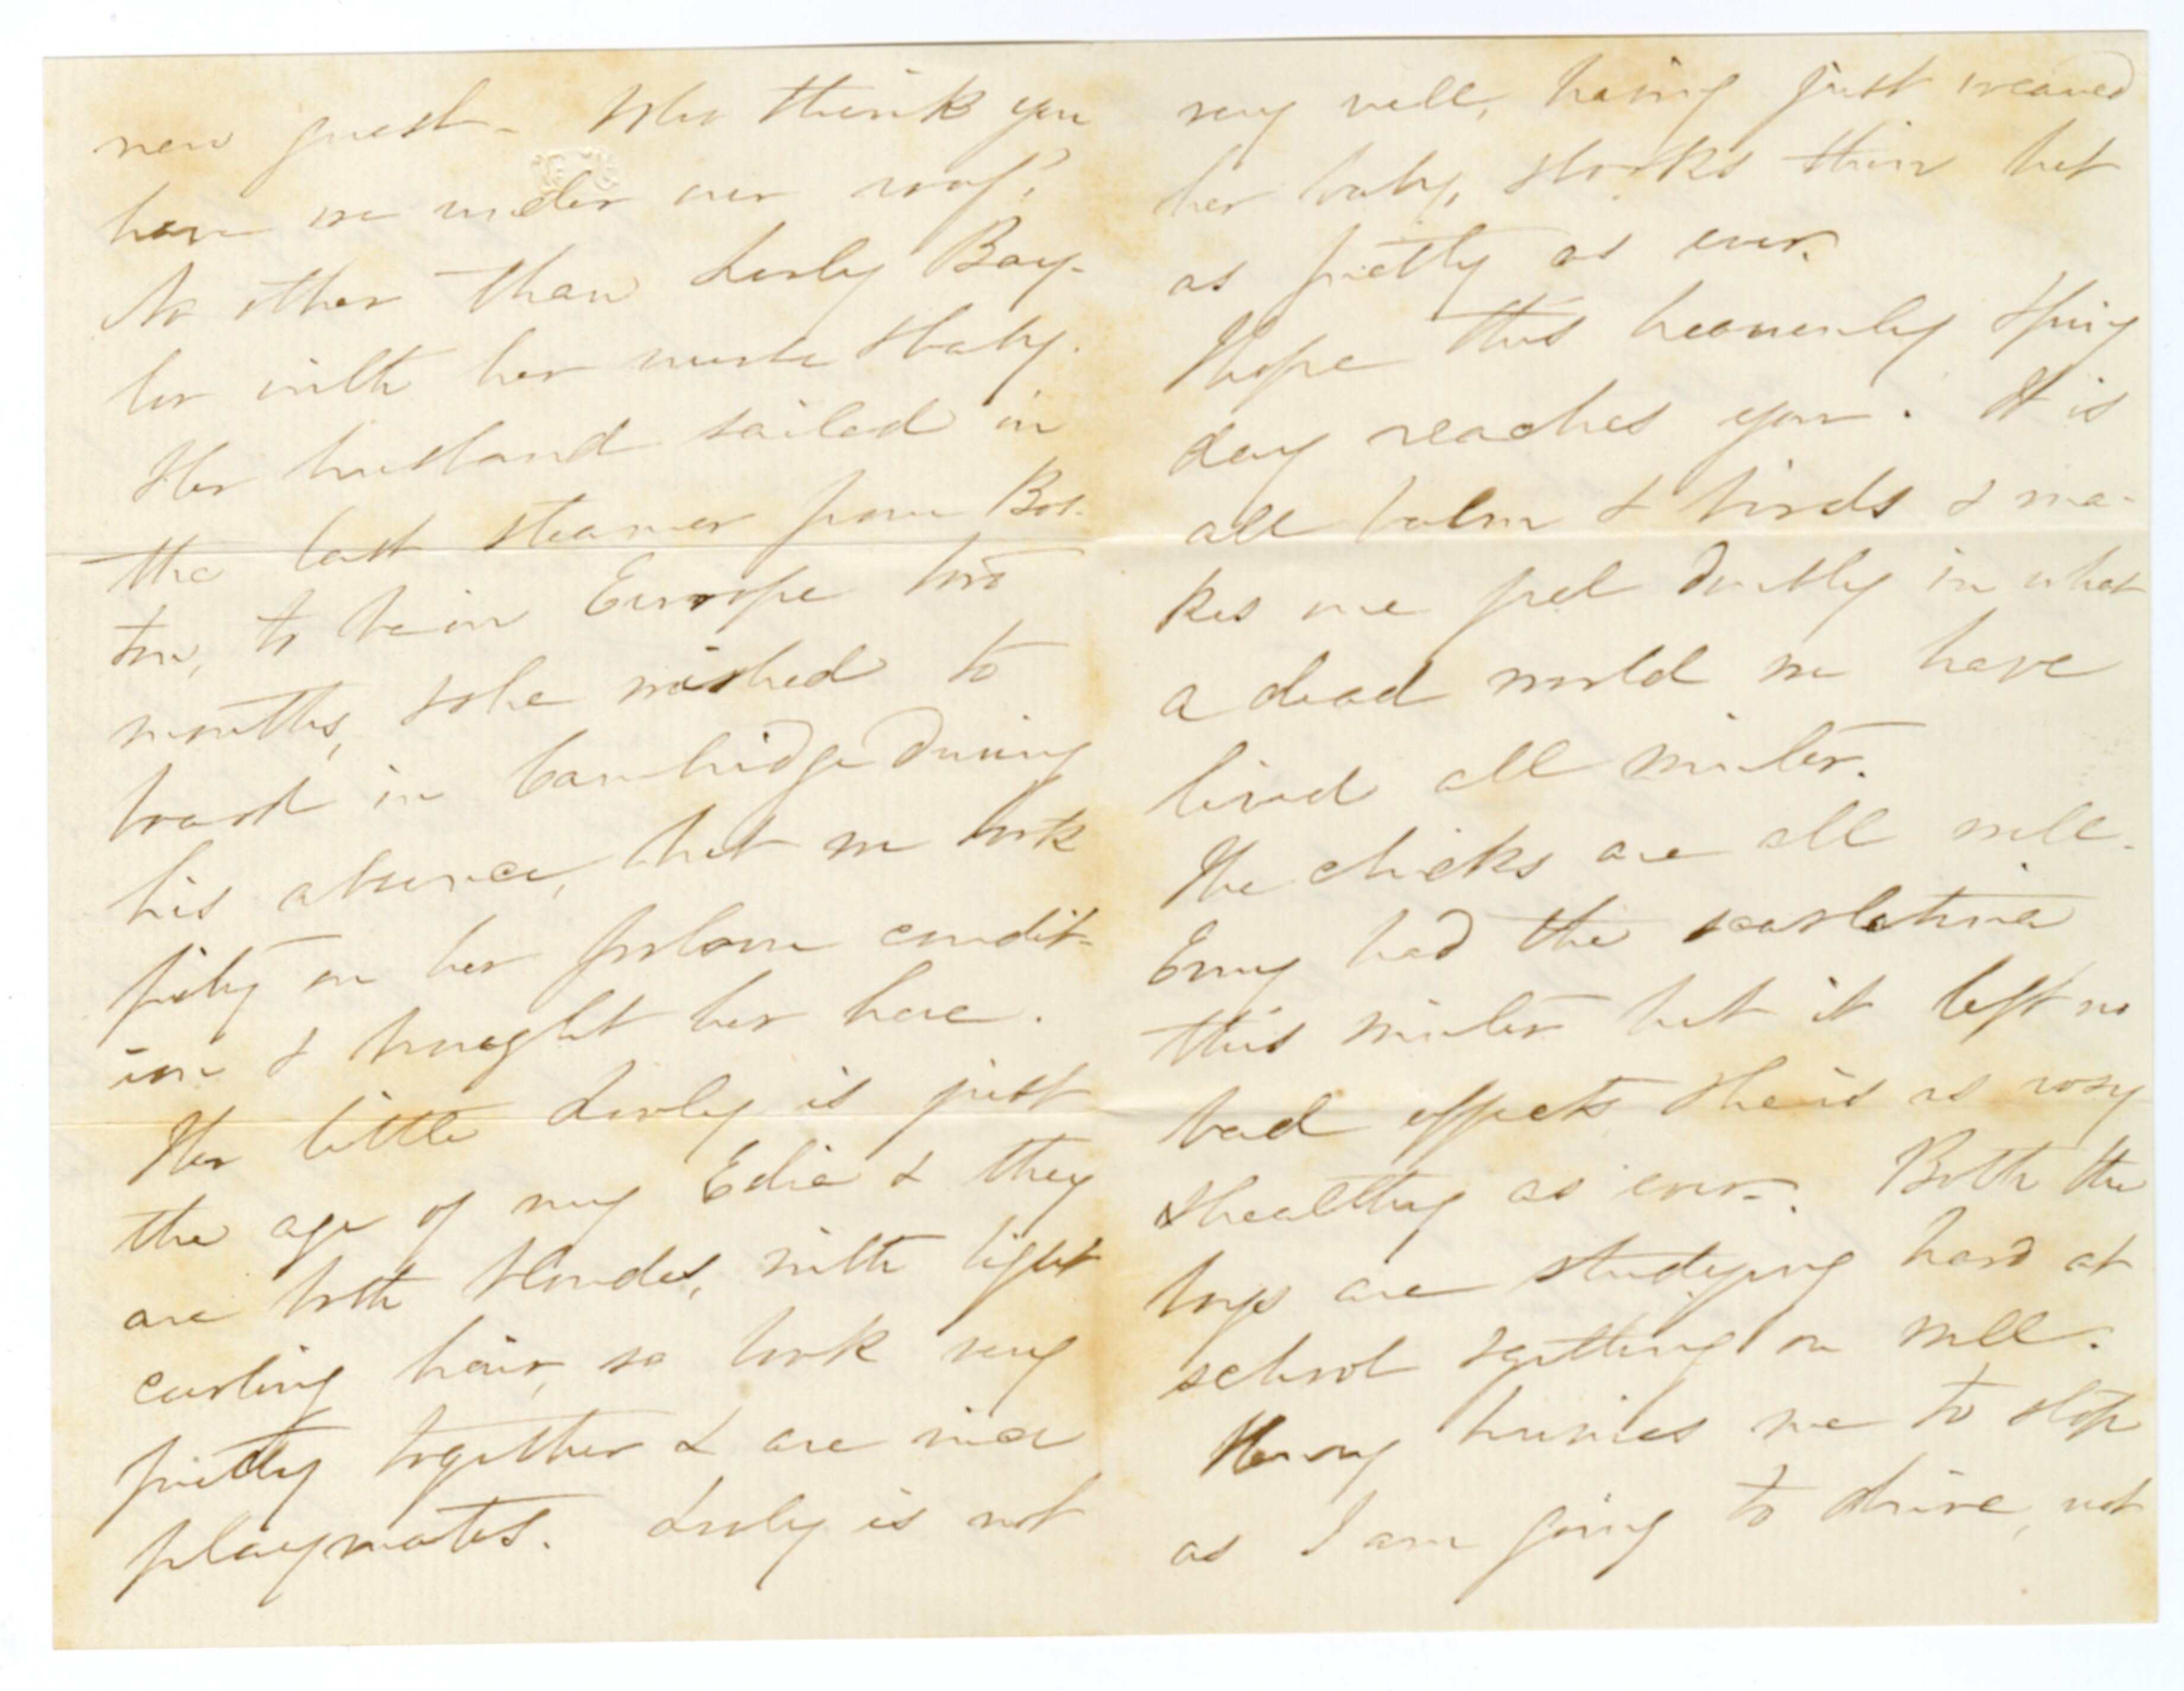 new guest. Who think you
have we under our roof?
No other than Lively Bay-
lor with her nurse & baby.
Her husband sailed in
the last steamer from Bos-
ton, to be in Europe two
months, & she wished to
board in Cambridge during
his absence, but we took
pity on her forlorn condit-
ion & brought her here.
Her little Lively is just
the age of my Edie & they
are both blondes, with light
curling hair, so look very
pretty together & are nice
playmates. Lively is not
very well, having just weaned
her baby, & looks thin but
as pretty as ever.
I hope this heavenly spring
day reaches you. It is
all balm & birds & ma-
kes me feel doubly in what
a dead world we have
lived all winter.
The chicks are all well.
Erny had the scarlatina
this winter but it left no
bad effects & he is as rosy
& healthy as ever. Both the
boys are studying hard at
school & getting on well.
Harry hurries me to stop
as I am going to drive, not